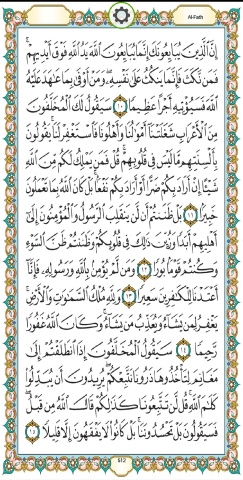 Al-Fath
إِنَّ ٱلَّذِينَ يُبَايِعُونَكَ إِنَّمَا يُبَايِعُونَ ٱللَّهَ يَدُ ٱللَّهِ فَوْقَ أَيْدِيهِمْ
فَمَن نَّكَثَ فَإِنَّمَا يَنكُثُ عَلَىٰ نَفْسِهِۦ وَمَنْ أَوْفَىٰ بِمَا عَٰهَدَ عَلَيْهُ
ٱللَّهَ فَسَيُؤْتِيهِ أَجْرًا عَظِيمًا ١٠ سَيَقُولُ لَكَ ٱلْمُخَلَّفُونَ
مِنَ ٱلْأَعْرَابِ شَغَلَتْنَآ أَمْوَٰلُنَا وَأَهْلُونَا فَٱسْتَغْفِرْ لَنَا يَقُولُونَ
بِأَلْسِنَتِهِم مَّا لَيْسَ فِى قُلُوبِهِمْ قُلْ فَمَن يَمْلِكُ لَكُم مِّنَ ٱللَّهِ
شَيْـًٔا إِنْ أَرَادَ بِكُمْ ضَرًّا أَوْ أَرَادَ بِكُمْ نَفْعًۢا بَلْ كَانَ ٱللَّهُ بِمَا تَعْمَلُونَ
خَبِيرًۢا ١١ بَلْ ظَنَنتُمْ أَن لَّن يَنقَلِبَ ٱلرَّسُولُ وَٱلْمُؤْمِنُونَ إِلَىٰٓ
أَهْلِيهِمْ أَبَدًا وَزُيِّنَ ذَٰلِكَ فِى قُلُوبِكُمْ وَظَنَنتُمْ ظَنَّ ٱلسَّوْءِ
وَكُنتُمْ قَوْمًۢا بُورًا ١٢ وَمَن لَّمْ يُؤْمِنۢ بِٱللَّهِ وَرَسُولِهِۦ فَإِنَّآ
أَعْتَدْنَا لِلْكَٰفِرِينَ سَعِيرًا ١٣ وَلِلَّهِ مُلْكُ ٱلسَّمَٰوَٰتِ وَٱلْأَرْضِ
يَغْفِرُ لِمَن يَشَآءُ وَيُعَذِّبُ مَن يَشَآءُ وَكَانَ ٱللَّهُ غَفُورًا
رَّحِيمًا ١٤ سَيَقُولُ ٱلْمُخَلَّفُونَ إِذَا ٱنطَلَقْتُمْ إِلَىٰ
مَغَانِمَ لِتَأْخُذُوهَا ذَرُونَا نَتَّبِعْكُمْ يُرِيدُونَ أَن يُبَدِّلُوا۟
كَلَٰمَ ٱللَّهِ قُل لَّن تَتَّبِعُونَا كَذَٰلِكُمْ قَالَ ٱللَّهُ مِن قَبْلُ
فَسَيَقُولُونَ بَلْ تَحْسُدُونَنَا بَلْ كَانُوا۟ لَا يَفْقَهُونَ إِلَّا قَلِيلًا ١٥
512